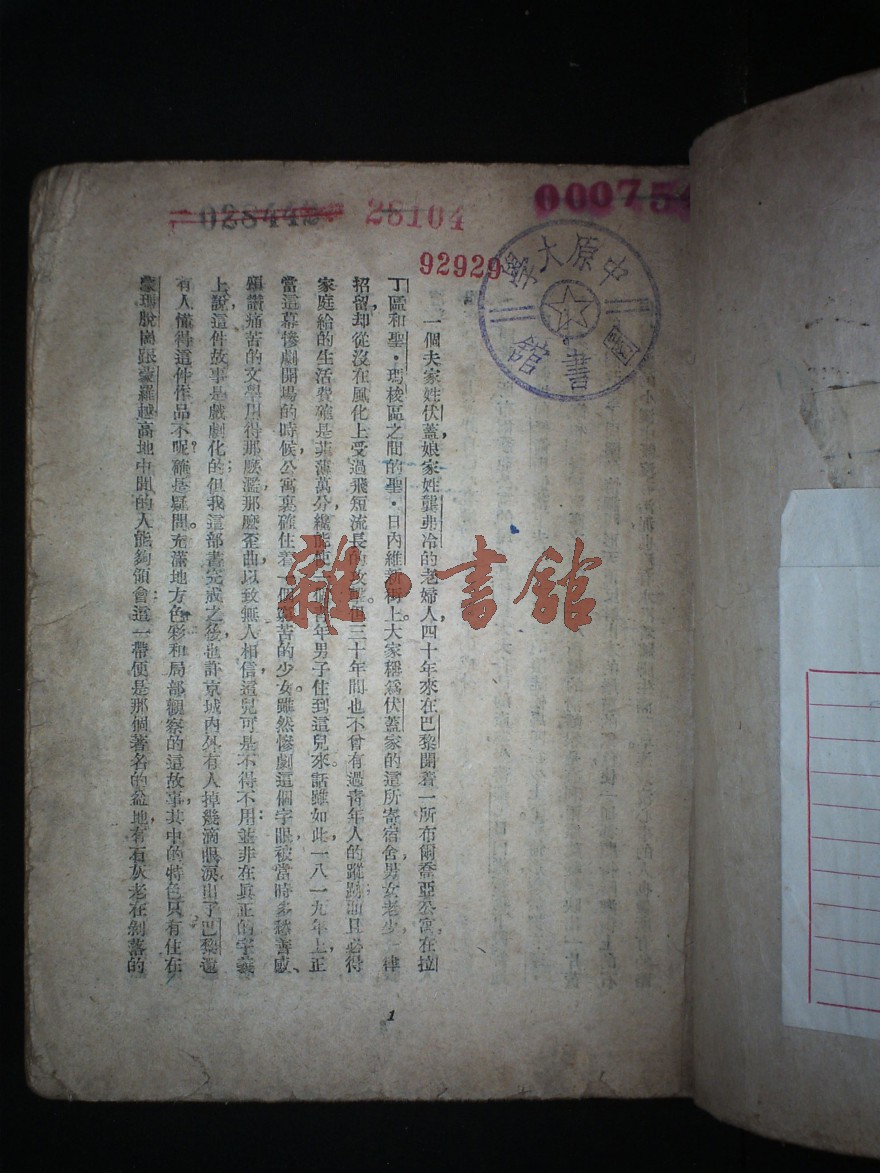 028442
28104
00075
92929
中原大學
圖書館
一個夫家姓伏蓋，娘家姓龔弗冷的老婦人，四十年來在巴黎開着一所布爾喬亞公寓，在拉
丁區和聖·瑪梭區之間的聖·日內維新街上。大家稱爲伏蓋家的這所寄宿舍，男女老少，一律
招留，却從沒在風化上受過飛短流長的攻擊。但三十年間也不曾有過青年人的蹤跡；而且必得
家庭給的生活費確是菲薄萬分，纔能使一個青年男子住到這兒來。話雖如此，一八一九年上，正
當這幕慘劇開場的時候，公寓裏確住着一個窮苦的少女。雖然慘劇這個字眼被當時多愁善感、
頌讚痛苦的文學用得那麽濫，那麽歪曲，以致無人相信；這兒可是不得不用：並非在真正的字義
上說，這件故事是戲劇化的；但我這部書完成之後，也許京城內外有人掉幾滴眼淚。出了巴黎還
有人懂得這件作品不呢？確是疑問。充滿地方色彩和局部觀察的這故事，其中的特色，只有住在
蒙瑪脫崗跟蒙羅越高地中間的人能夠領會；這一帶便是那個著名的盆地，有石灰老在剝落的
1
雜·書館